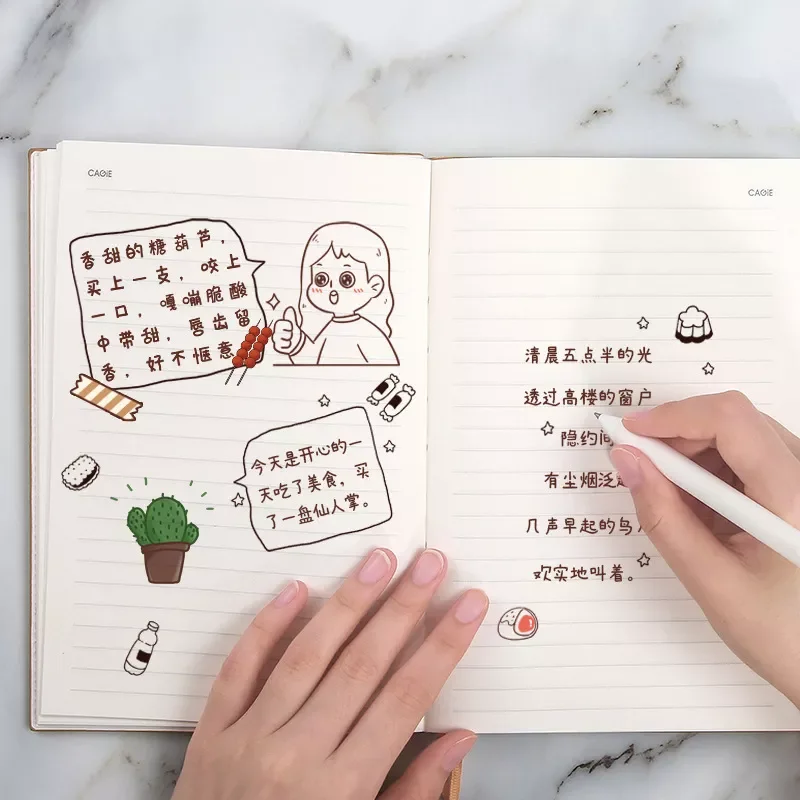 CAGiE
香甜的糖葫芦，
买上一支，咬上
一口，嘎嘣脆酸
中带甜，唇齿留
香，好不惬意
今天是开心的一
天吃了美食，买
了一盘仙人掌。
CAGiE
清晨五点半的光
透过高楼的窗户
隐约间
有尘烟泛起
几声早起的鸟儿
欢实地叫着。